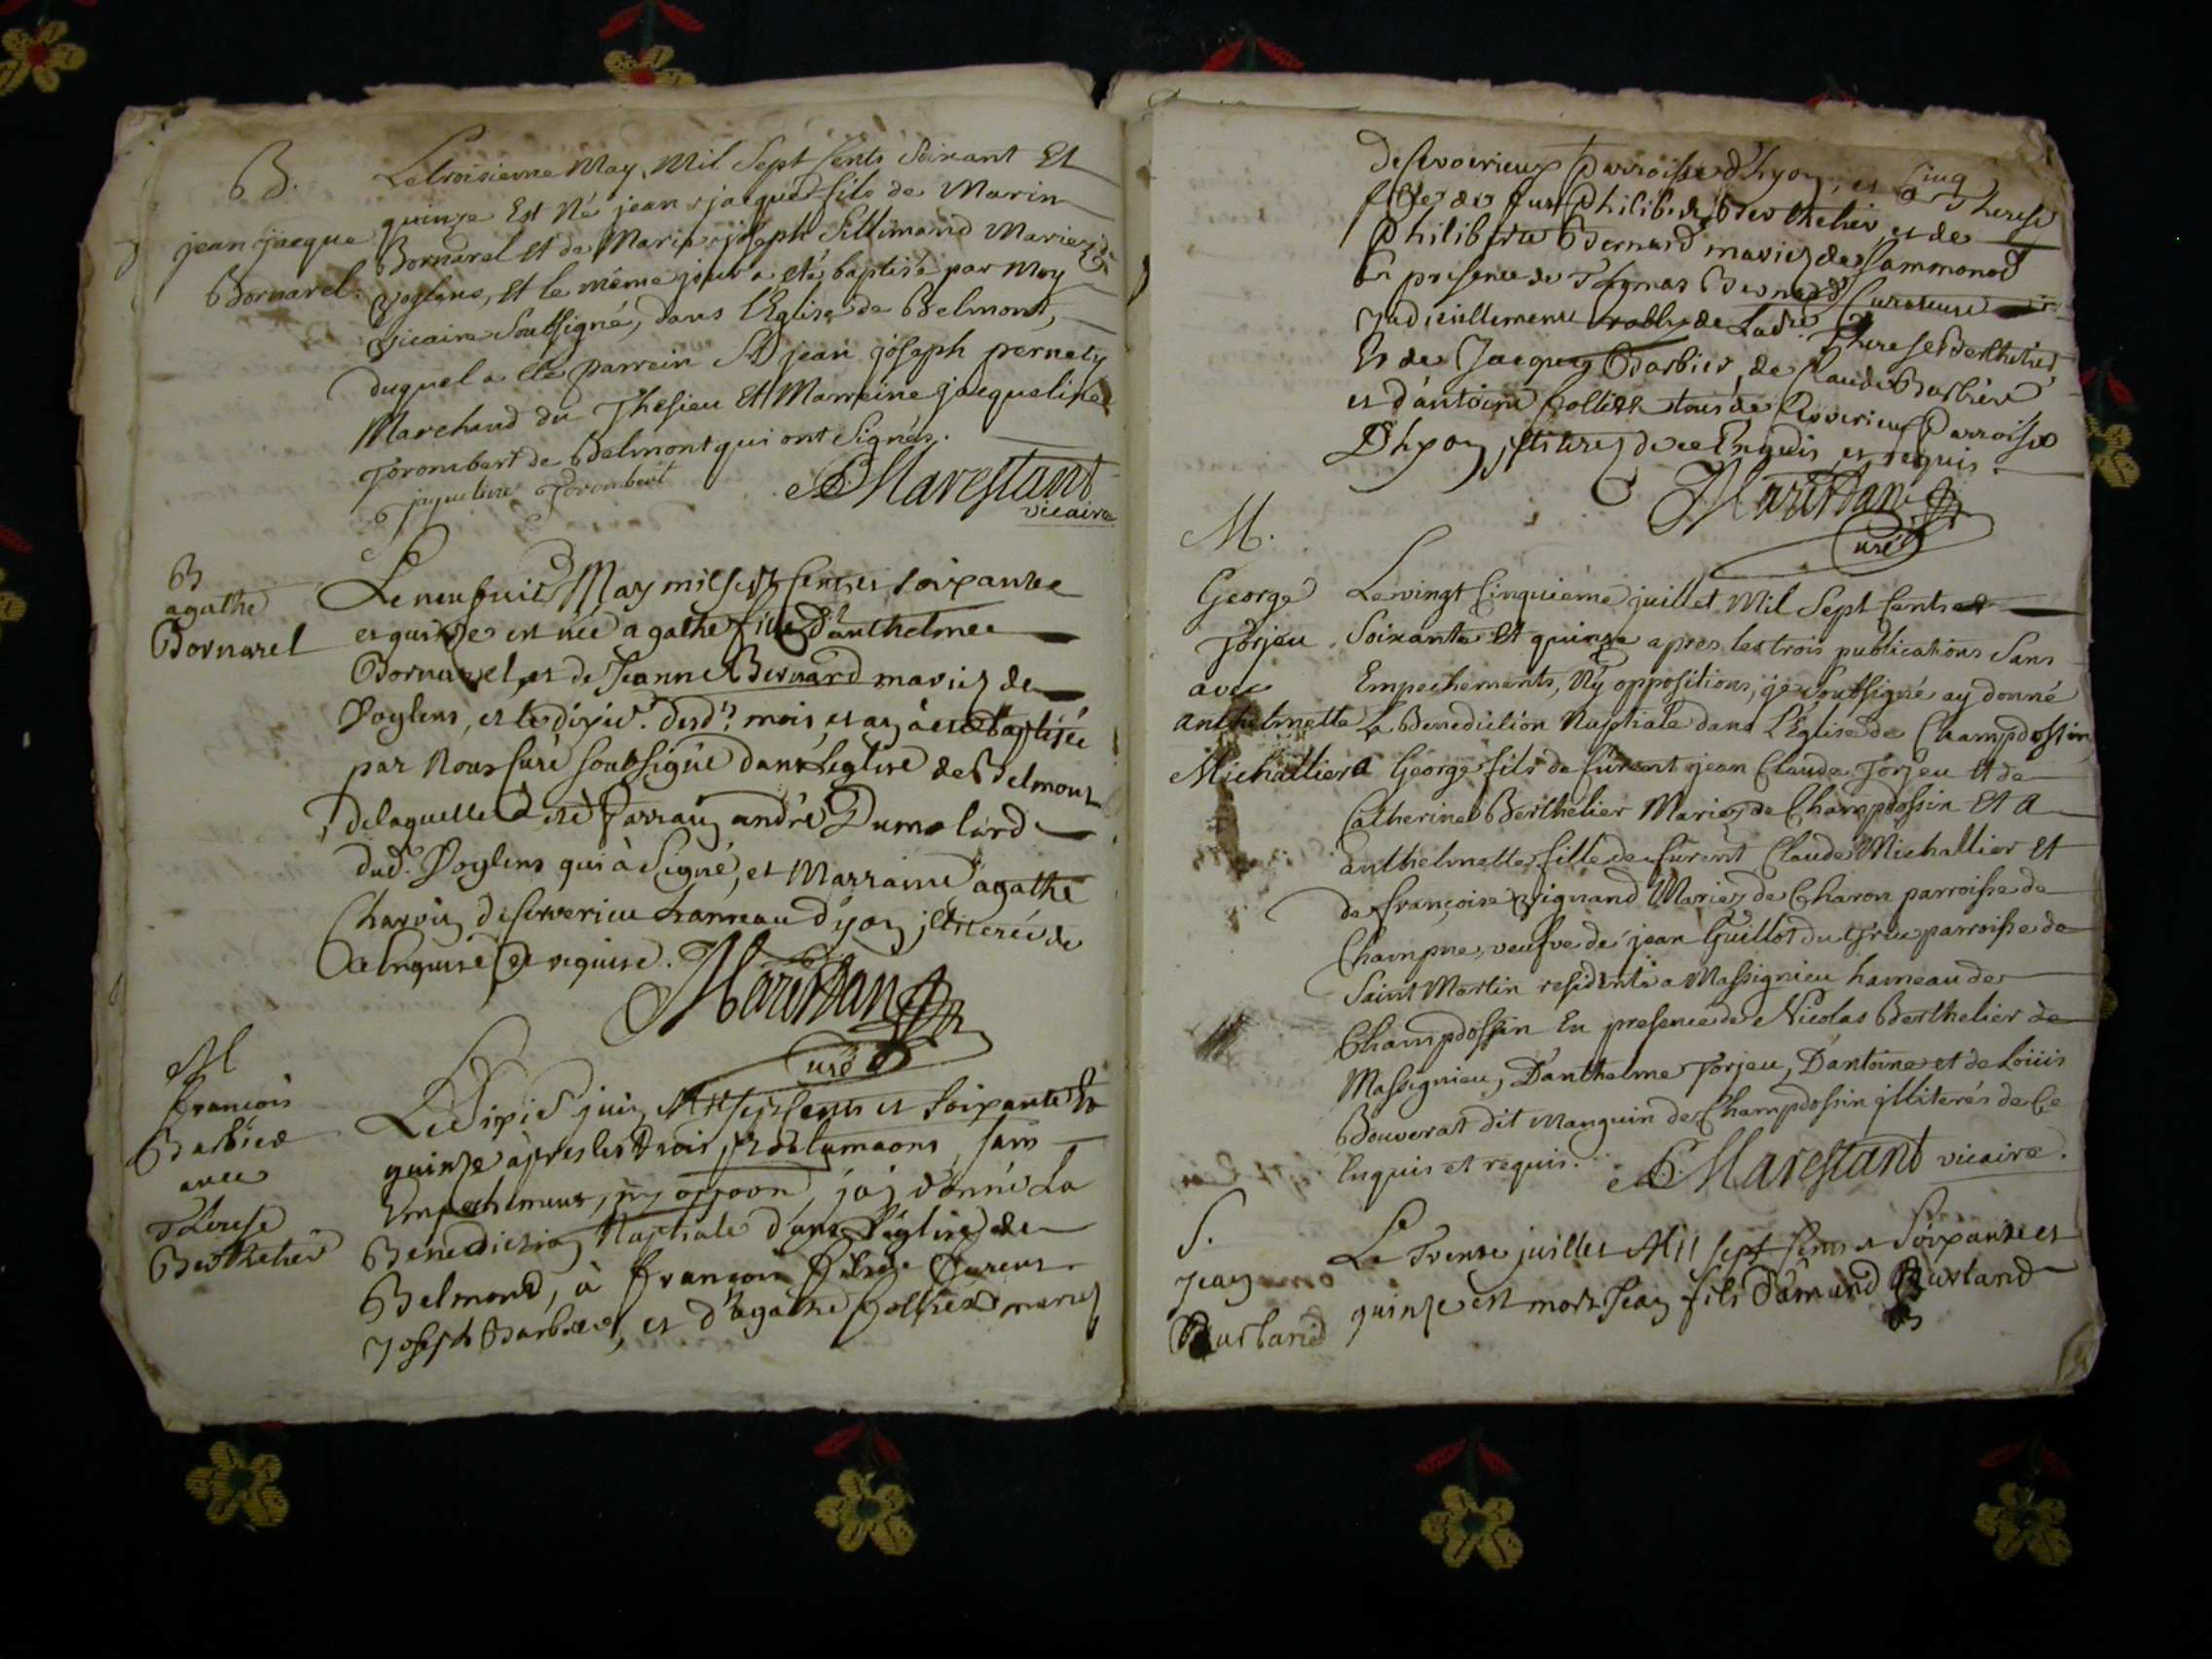 B.
jean jacque
Bornarel.
Le troisieme May, Mil Sept Cents Soixant Et
quinze Est Né jean jacque fils de Marin
Bornarel et de Marie joseph Sillimand Mariez de
voglens, et le même jour a été baptisé par Moy
vicaire Soussigné, dans l'Eglise de Belmont,
duquel a été parrein Sr jean joseph pernety
Marchand du Thesieu Et Marreine jacqueline
Torombert de Belmont qui ont Signés.
jaqueline Torombert
Marestant
vicaire
B
agathe
Bornarel
Le neufvie May mil sept cents et soixante
et quinze est née agathe fille d'anthelme
Bornarel, et de Jeanne Bernard mariez de
Voglens, et le dixie. dud. mois, et an à été baptisée
par Nous Curé soubsigné dans Leglise de Belmont
delaquelle à été Parrain andré Dumolard
dud. Voglens qui à Signé, et Marraine agathe
Charvin de hameau d'yon illiterée de
ce Enquise et requise.
Marestan
Curé
M
françois
Barbier
avec
Therese
Berthelier
Le Dixie juin Mil sept cents et soixante et
quinze àpres les trois proclamaons, sans
Empechement, ny oppoon, j'ay donné La
Benediction Nuptiale dans l'église de
Belmond, à françois fils de furent
Joseph Barbier, et d'agathe Collier mariez
paroisse d'hyon, et Therese
fille de fut Philibert Berthelier et de
Philiberte Bernard mariez de Sammonod
En presence de Thomas Bernard Curateur
Judiciellement de Lade. Therese Berthelier,
Et de Jacques Barbier, de Claude Barbier
et d'antoine Collier tous de Parroisse
D'hyon illiterez de ce Enquis et requis.
Marestan
Curé
M.
George
Torjeu
avec
anthelmette
Michallier
Le vingt Cinquième juillet Mil Sept Cents et
Soixante Et quinze apres les trois publications Sans
Empechements, Ny oppositions, je Soussigné ay donné
La Benediction Nuptiale dans L'Eglise de Champdossin,
a George fils de furent jean Claude Torjeu et de
Catherine Berthelier Mariez de Champdossin Et a
anthelmette fille de furent Claude Michallier et
de françoise vignand Mariez de Charon parroisse de
Champne, veufve de jean Guillot du parroisse de
Saint Martin residents a Massignieu hameau de
Champdossin En presence de Nicolas Berthelier de
Massignieu, D'anthelme Torjeu, D'antoine et de Loüis
Bouverat dit Manguin de Champdossin illiterés de Ce
Enquis et requis.
Marestant vicaire.
S.
Jean
Burland
Le Trente juillet Mil sept Cents et Soixante et
quinze est mort Jean fils d'amand Burland